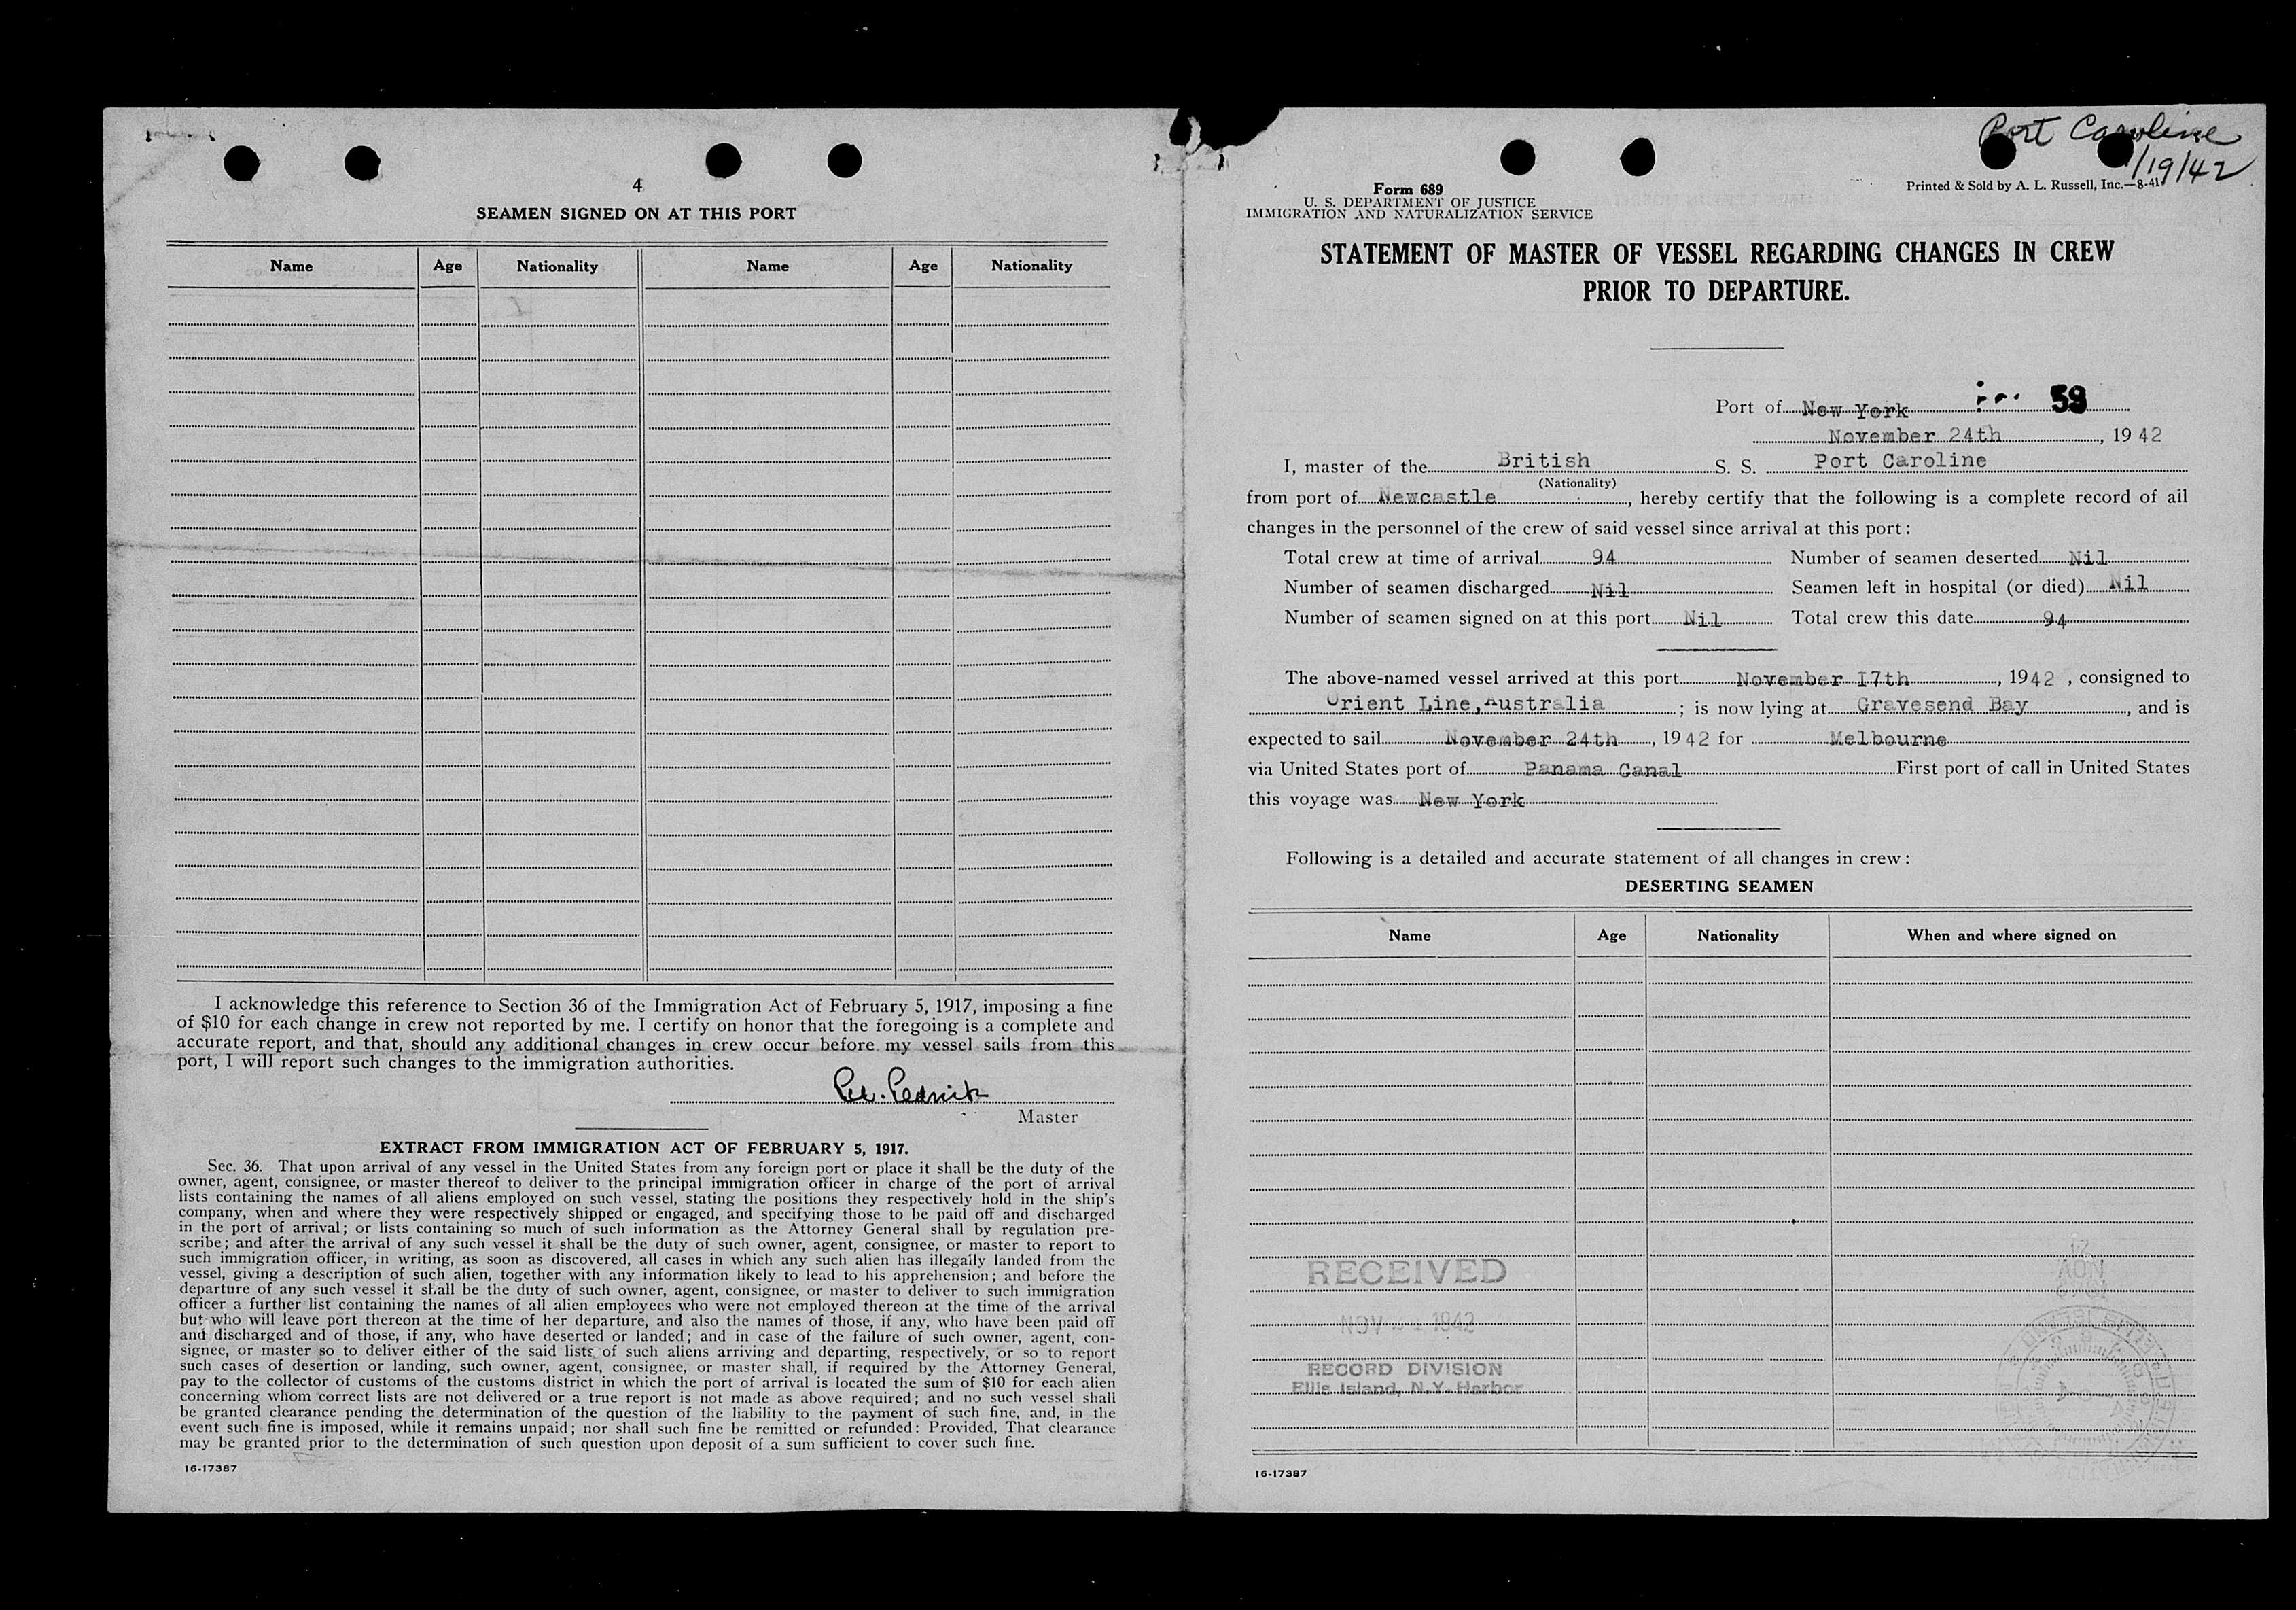 4
SEAMEN SIGNED ON AT THIS PORT
Name Age Nationality Name Age Nationality
I acknowledge this reference to Section 36 of the Immigration Act of February 5, 1917, imposing a fine
of $10 for each change in crew not reported by me. I certify on honor that the foregoing is a complete and
accurate report, and that, should any additional changes in crew occur before my vessel sails from this
port, I will report such changes to the immigration authorities.
Master
EXTRACT FROM IMMIGRATION ACT OF FEBRUARY 5, 1917.
Sec. 36. That upon arrival of any vessel in the United States from any foreign port or place it shall be the duty of the
owner, agent, consignee, or master thereof to deliver to the principal immigration officer in charge of the port of arrival
lists containing the names of all aliens employed on such vessel, stating the positions they respectively hold in the ship's
company, when and where they were respectively shipped or engaged, and specifying those to be paid off and discharged
in the port of arrival; or lists containing so much of such information as the Attorney General shall by regulation pre-
scribe; and after the arrival of any such vessel it shall be the duty of such owner, agent, consignee, or master to report to
such immigration officer, in writing, as soon as discovered, all cases in which any such alien has illegally landed from the
vessel, giving a description of such alien, together with any information likely to lead to his apprehension; and before the
departure of any such vessel it shall be the duty of such owner, agent, consignee, or master to deliver to such immigration
officer a further list containing the names of all alien employees who were not employed thereon at the time of the arrival
but who will leave port thereon at the time of her departure, and also the names of those, if any, who have been paid off
and discharged and of those, if any, who have deserted or landed; and in case of the failure of such owner, agent, con-
signee, or master so to deliver either of the said lists of such aliens arriving and departing, respectively, or so to report
such cases of desertion or landing, such owner, agent, consignee, or master shall, if required by the Attorney General,
pay to the collector of customs of the customs district in which the port of arrival is located the sum of $10 for each alien
concerning whom correct lists are not delivered or a true report is not made as above required; and no such vessel shall
be granted clearance pending the determination of the question of the liability to the payment of such fine, and, in the
event such fine is imposed, while it remains unpaid; nor shall such fine be remitted or refunded: Provided, That clearance
may be granted prior to the determination of such question upon deposit of a sum sufficient to cover such fine.
16-17387
Port Caroline
/19/42
Form 689
U. S. DEPARTMENT OF JUSTICE
IMMIGRATION AND NATURALIZATION SERVICE
Printed & Sold by A. L. Russell, Inc.—8-41
STATEMENT OF MASTER OF VESSEL REGARDING CHANGES IN CREW
PRIOR TO DEPARTURE.
Port of New York 59
November 24th, 1942
I, master of the British S. S. Port Caroline
(Nationality)
from port of Newcastle, hereby certify that the following is a complete record of all
changes in the personnel of the crew of said vessel since arrival at this port:
Total crew at time of arrival 94 Number of seamen deserted Nil
Number of seamen discharged Nil Seamen left in hospital (or died) Nil
Number of seamen signed on at this port Nil Total crew this date 94
The above-named vessel arrived at this port November 17th, 1942, consigned to
Orient Line, Australia; is now lying at Gravesend Bay, and is
expected to sail November 24th, 1942 for Melbourne
via United States port of Panama Canal First port of call in United States
this voyage was New York
Following is a detailed and accurate statement of all changes in crew:
DESERTING SEAMEN
Name Age Nationality When and where signed on
RECEIVED
NOV 1942
RECORD DIVISION
Ellis Island, N.Y. Harbor
16-17387